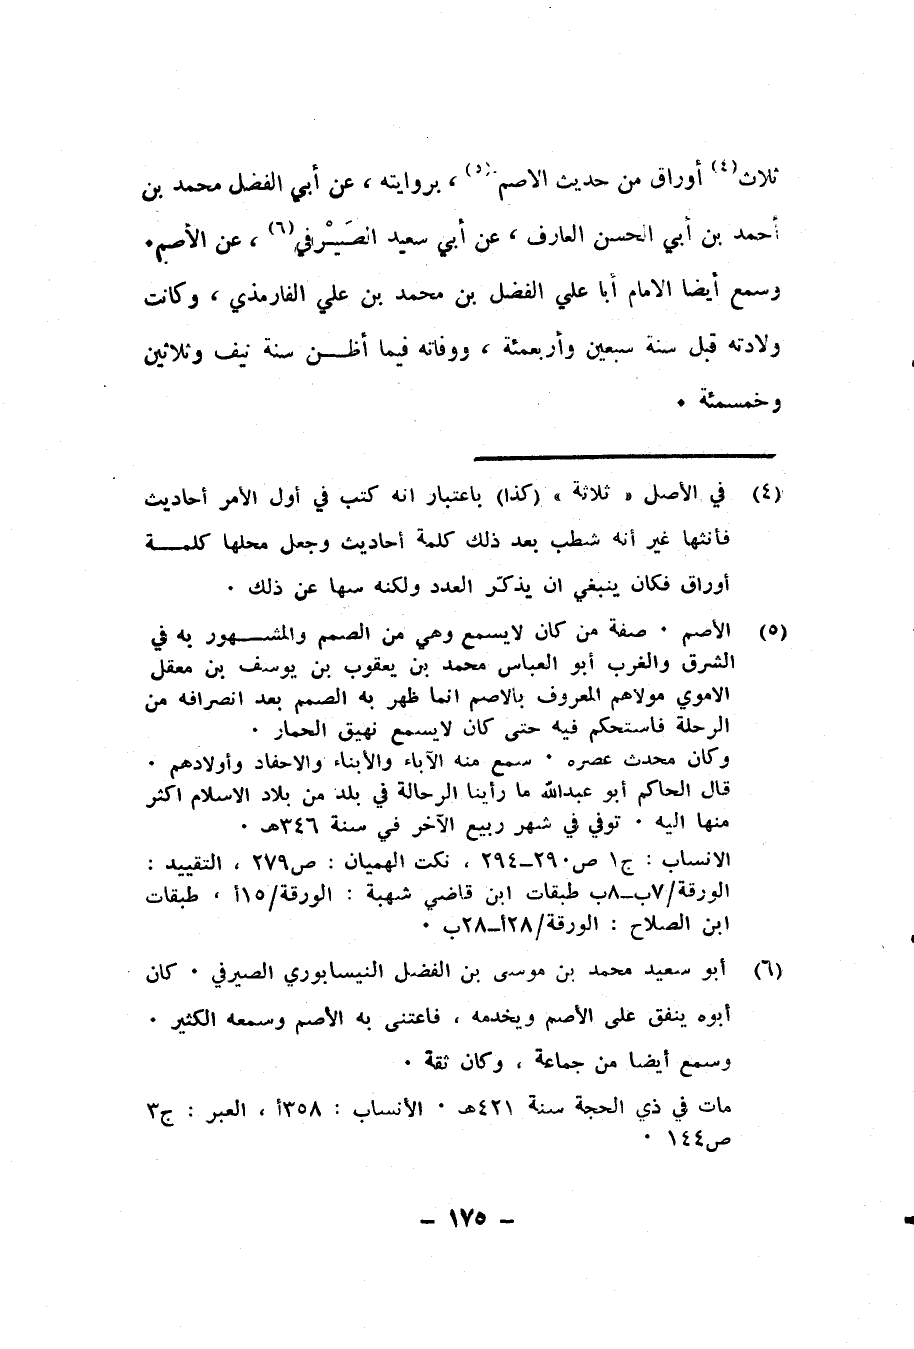 ثلاث(٤) أوراق من حديث الاصم(٥) ، بروايته ، عن أبي الفضل محمد بن
أحمد بن أبي الحسن العارف ، عن أبي سعيد الصَيْرفي(٦) ، عن الأصم٠
وسمع أيضا الامام أبا علي الفضل بن محمد بن علي الفارمذي ، وكانت
ولادته قبل سنة سبعين وأربعمئة ، ووفاته فيما أظــن سنة نيف وثلاثين
وخمسمئة ٠
(٤) في الأصل « ثلاثة » (كذا) باعتبار انه كتب في أول الأمر أحاديث
فأنثها غير أنه شطب بعد ذلك كلمة أحاديث وجعل محلها كلمــة
أوراق فكان ينبغي ان يذكّر العدد ولكنه سها عن ذلك ٠
(٥) الأصم ٠ صفة من كان لايسمع وهي من الصمم والمشــهور به في
الشرق والغرب أبو العباس محمد بن يعقوب بن يوسف بن معقل
الاموي مولاهم المعروف بالاصم انما ظهر به الصمم بعد انصرافه من
الرحلة فاستحكم فيه حتى كان لايسمع نهيق الحمار ٠
وكان محدث عصره ٠ سمع منه الآباء والأبناء والاحفاد وأولادهم ٠
قال الحاكم أبو عبدالله ما رأينا الرحالة في بلد من بلاد الاسلام اكثر
منها اليه ٠ توفي في شهر ربيع الآخر في سنة ٣٤٦هـ ٠
الانساب : ج١ ص٢٩٠–٢٩٤ ، نكت الهميان : ص٢٧٩ ، التقييد :
الورقة/٧ب–٨ب طبقات ابن قاضي شهبة : الورقة/١٥أ ، طبقات
ابن الصلاح : الورقة/٢٨أ–٢٨ب ٠
(٦) أبو سعيد محمد بن موسى بن الفضل النيسابوري الصيرفي ٠ كان
أبوه ينفق على الأصم ويخدمه ، فاعتنى به الأصم وسمعه الكثير ٠
وسمع أيضا من جماعة ، وكان ثقة ٠
مات في ذي الحجة سنة ٤٢١هـ ٠ الأنساب : ٣٥٨أ ، العبر : ج٣
ص١٤٤ ٠
– ١٧٥ –